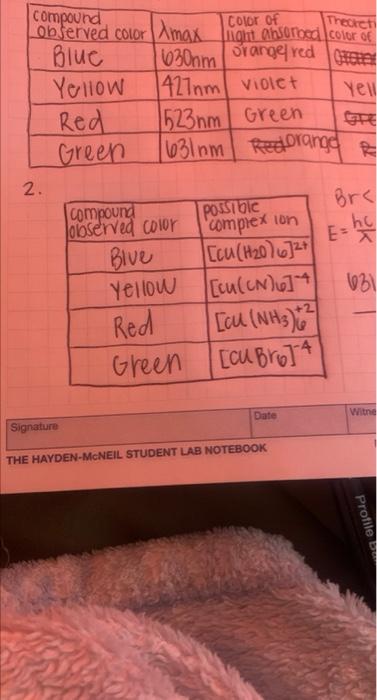 compound observed color | λmax | Color of light absorbed | Theoreti color of
Blue | 630nm | orange/red
Yellow | 427nm | violet | Yell
Red | 523nm | Green | Gre
Green | 631nm | Red orange | R
2.
compound observed color | possible complex ion
Blue | [Cu(H2O)6]2+
Yellow | [Cu(CN)6]-4
Red | [Cu(NH3)6+2
Green | [CuBr6]-4
Br<
E= hc/λ
631
Signature
Date
Witne
THE HAYDEN-McNEIL STUDENT LAB NOTEBOOK
Profile Ba